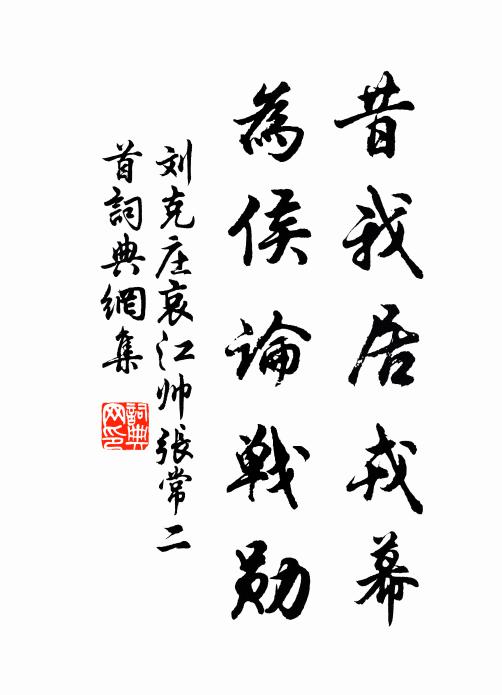 昔我居戎幕
為侯論戦勋
刘克庄哀江帅張常二
首詞典網集
詞典网印